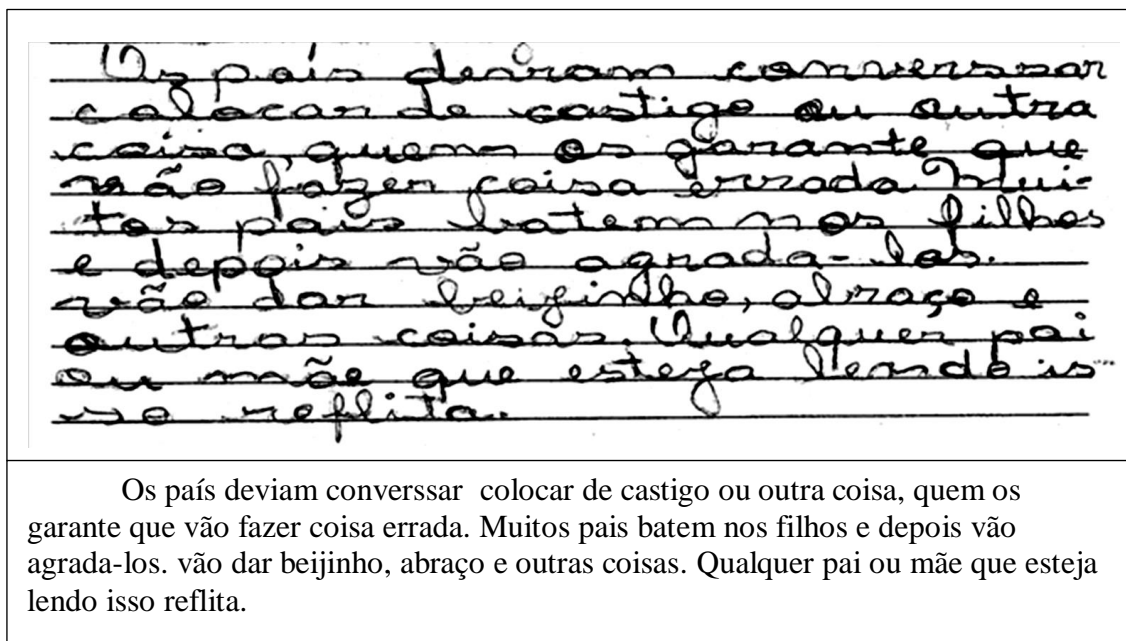 Os país deviram converssar
colocar de castigo ou outra
coisa quem os garante que
vão fazer coisa errada. Mui-
tos pais batem nos filhos
e depois vão agrada-los.
vão dar beijinho, abraço e
outras coisas. Qualquer pai
ou mãe que esteja lendo is-
so reflita.
Os país deviam converssar colocar de castigo ou outra coisa, quem os
garante que vão fazer coisa errada. Muitos pais batem nos filhos e depois vão
agrada-los. vão dar beijinho, abraço e outras coisas. Qualquer pai ou mãe que esteja
lendo isso reflita.